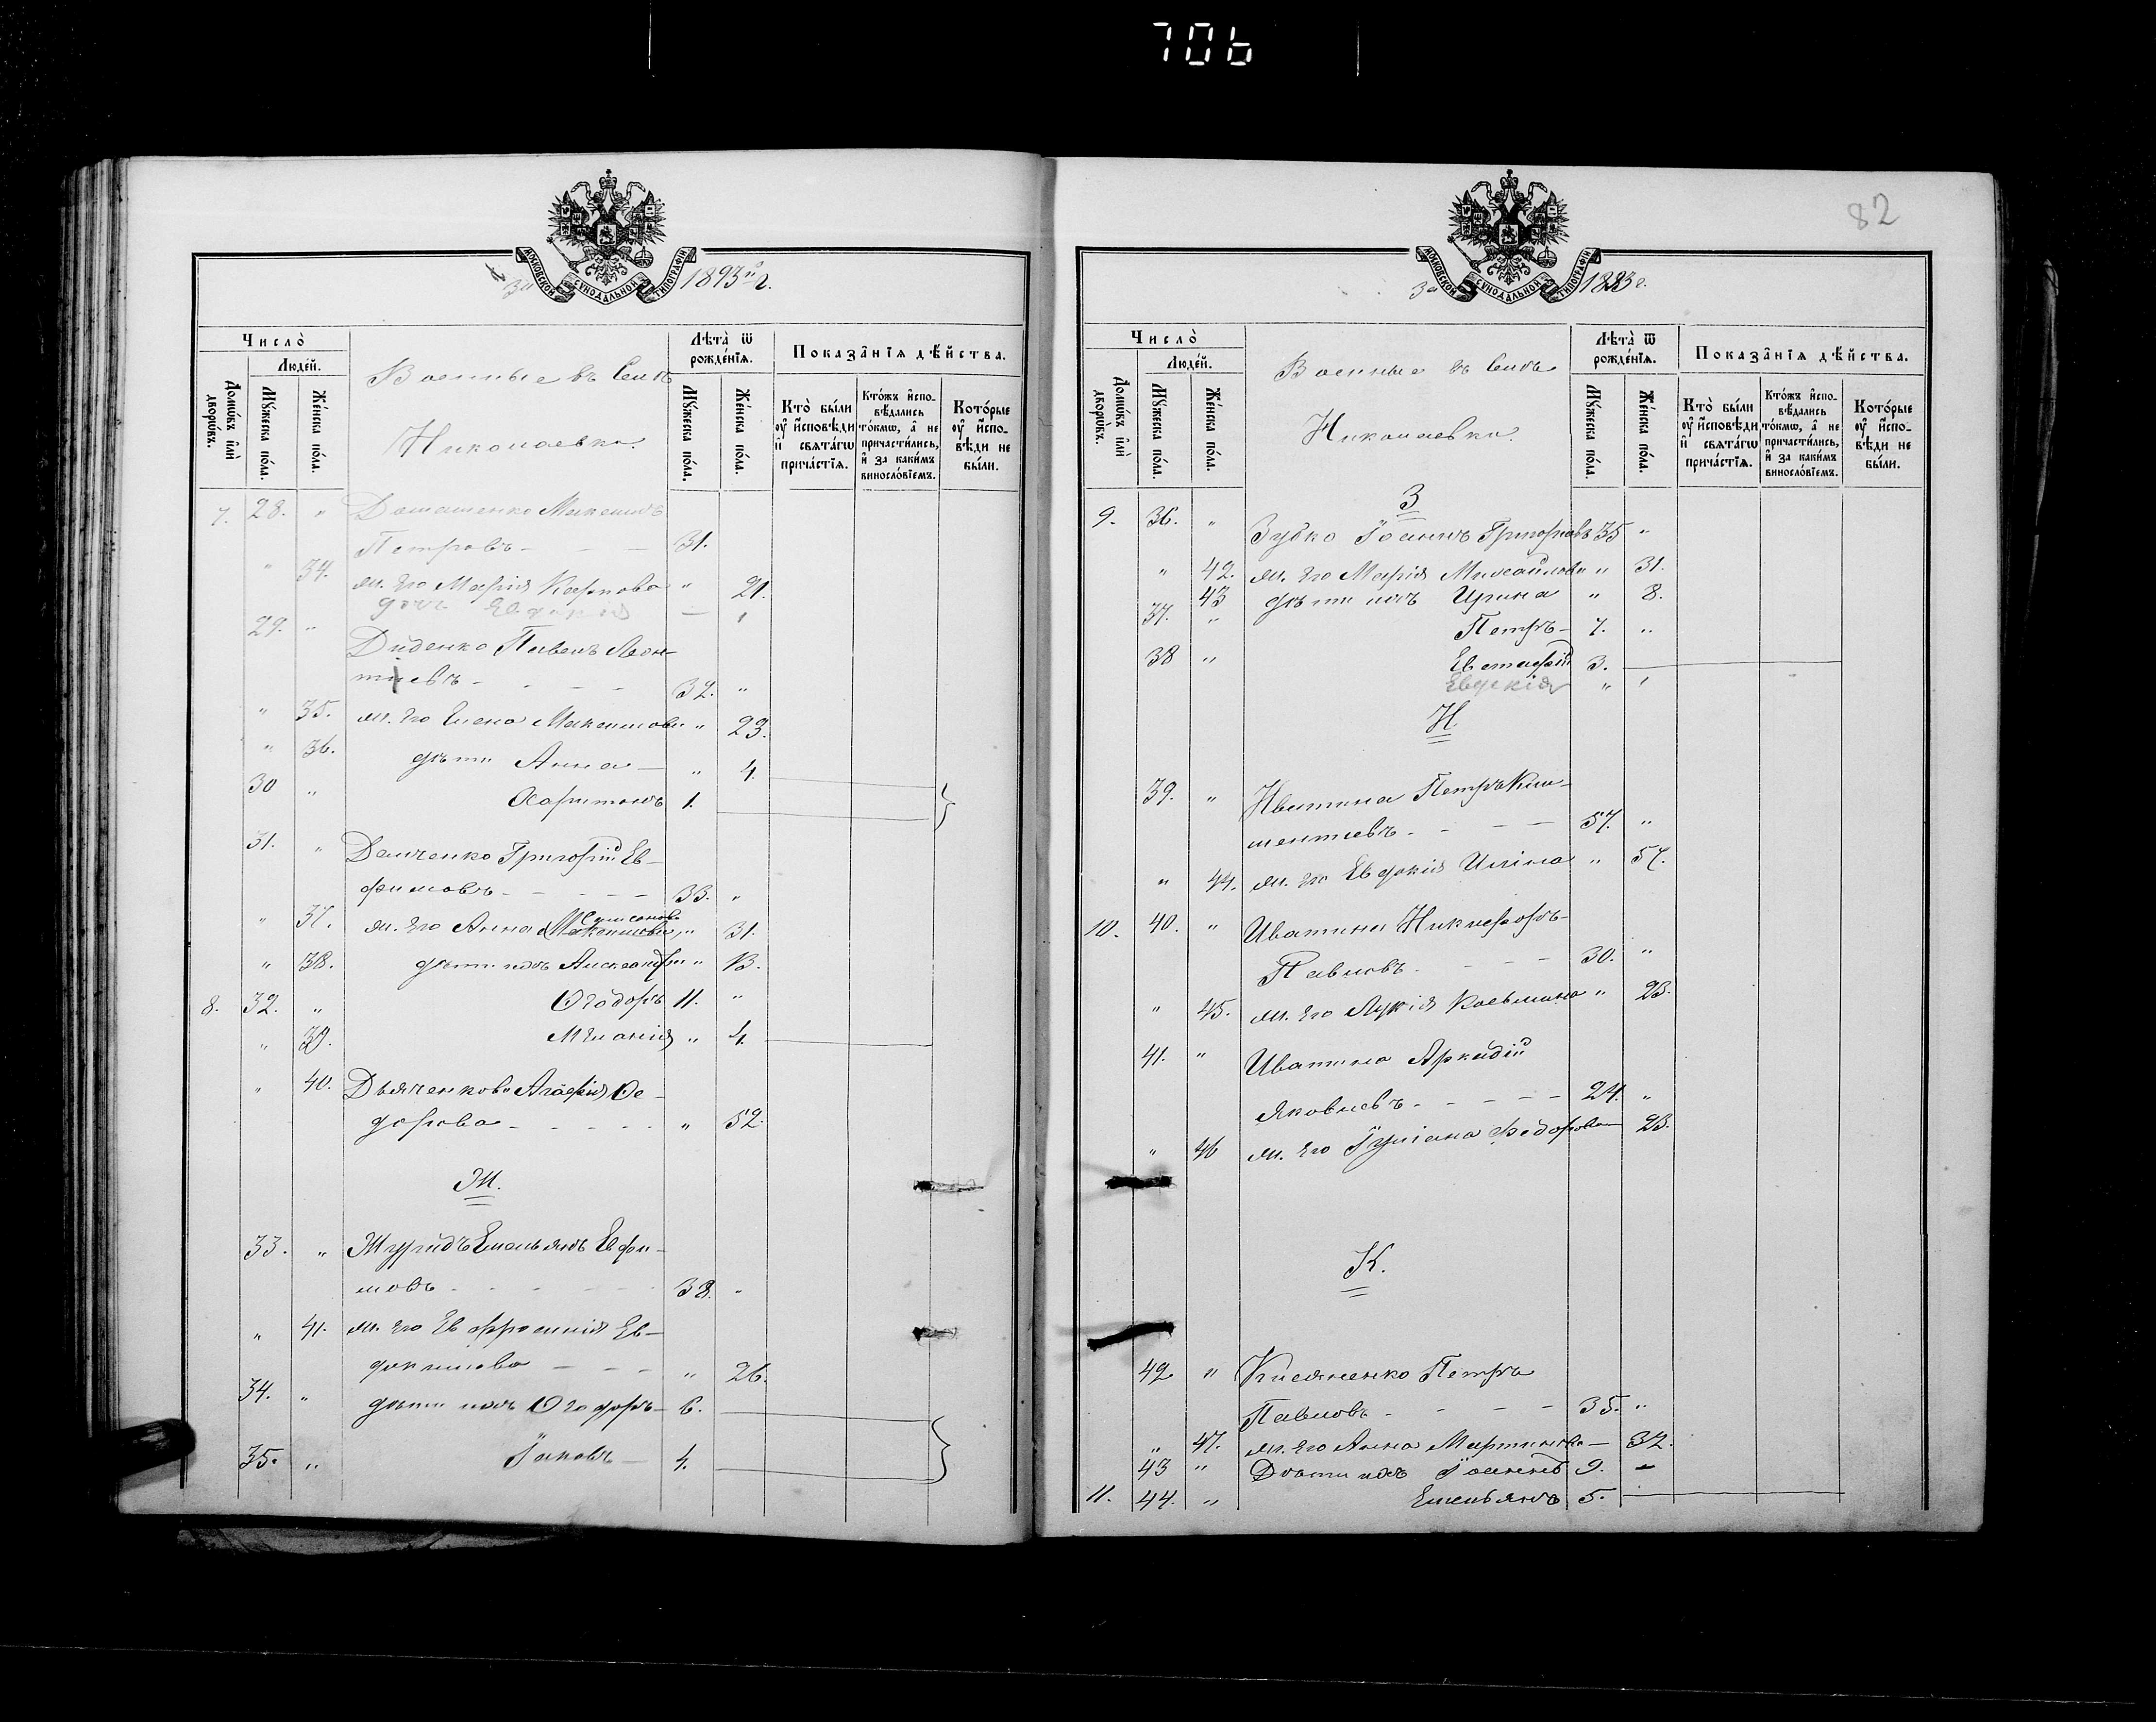 706
МОСКОВСКОЙ СѴНОДАЛЬНОЙ ТИПОГРАФІИ
За 1893й г.
Число̀
Людей.
Домѡвъ или дворѡвъ.
Мꙋжеска пола.
Женска пола.
Военные въ Селѣ
Николаевка.
Лѣта̀ ѿ рожде́нїѧ.
Мꙋжеска пола.
Женска пола.
Показа̂нїѧ дѣ́йства.
Кто̀ бы́ли оу̓ и҆сповѣди и҆ свѧта́гѡ прича́стїѧ.
Кто́жъ и҆спо-вѣдались то́кмѡ, а҆ не причасти́лись, и҆ за каки́мъ виносло́вїемъ.
Кото́рые оу̓ и҆спо-вѣди не бы́ли.
7. 28. „ Домашенко Максимъ
Петровъ - - - 31.
„ 34. ж. Его Марія Карпова „ 21.
доч. Евдокія — 1
29. „ Диденко Павелъ Леон-
тіевъ - - - - 32. „
„ 35. ж. Его Елена Максимова „ 23.
„ 36. дѣти Анна — „ 4.
30 „ Харитонъ 1.
31. „ Демченко Григорій Ев-
фимовъ - - - - 33. „
Самсонова
„ 37. ж. Его Анна Максимова „ 31.
„ 38. дѣти ихъ Александра „ 13.
8. 32. „ Ѳеодоръ 11. „
„ 39. Меланія „ 4.
„ 40. Дьяченкова Агафія Ѳе-
дорова - - - - - „ 52.
Ж.
33. „ Журидъ Емельянъ Евфи-
мовъ - - - - 38. „
„ 41. ж. Его Евфросинія Ев-
докимова — - - „ 26.
34. „ дѣти ихъ Ѳеодоръ — 6.
35. „ Іаковъ — 4.
82
МОСКОВСКОЙ СѴНОДАЛЬНОЙ ТИПОГРАФІИ
За 1893 г.
Число̀
Людей.
Домѡвъ или дворѡвъ.
Мꙋжеска пола.
Женска пола.
Военные въ Селѣ
Николаевка.
Лѣта̀ ѿ рожде́нїѧ.
Мꙋжеска пола.
Женска пола.
Показа̂нїѧ дѣ́йства.
Кто̀ бы́ли оу̓ и҆сповѣди и҆ свѧта́гѡ прича́стїѧ.
Кто́жъ и҆спо-вѣдались то́кмѡ, а҆ не причасти́лись, и҆ за каки́мъ виносло́вїемъ.
Кото́рые оу̓ и҆спо-вѣди не бы́ли.
З
9. 36. „ Зубко Іоаннъ Григорьевъ 35 „
„ 42. ж. Его Марія Михайлова „ 31.
43 дѣти ихъ Ирина „ 8.
37. „ Петръ — 7. „
38 „ Евстафій 3.
Евдокія „ 1
И.
39. „ Ивашина Петръ Кли-
ментіевъ - - - 57. „
„ 44. ж. Его Евдокія Иліина „ 57.
10. 40. „ Ивашина Никифоръ
Павловъ - - - 30. „
„ 45. ж. Его Лукія Косьмина „ 23.
41. „ Ивашина Аркадій
Яковлевъ - - - - 24. „
„ 46 ж. Его Іуліана Федорова — 23.
К.
42 „ Кисляненко Петръ
Павловъ - - - 35. „
„ 47. ж. Его Анна Мартинова — 32.
43 „ Дѣти ихъ Іоаннъ 9. -
11. 44. „ Емельянъ 5.